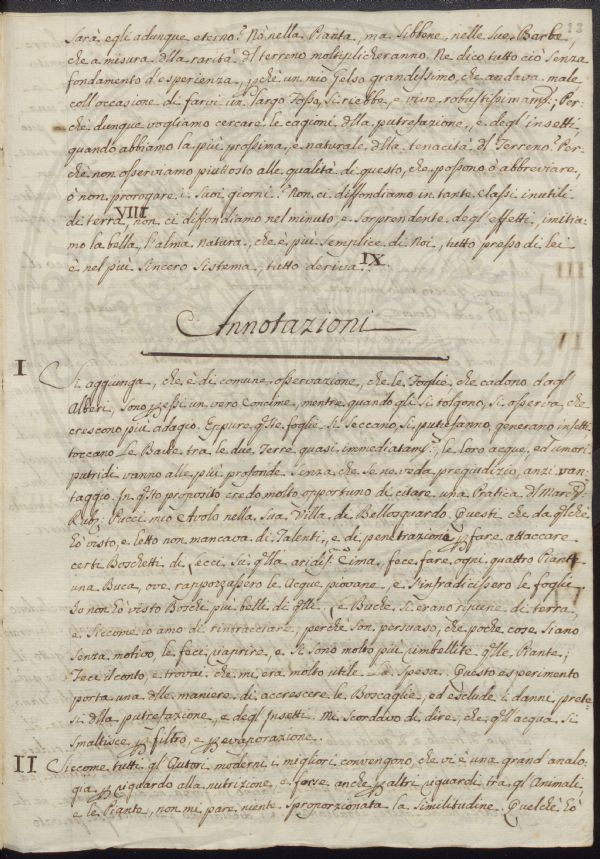 13
Sarà egli adunque eterno? Nò nella Pianta, ma sibbene nelle sue Barbe,
che à misura dlla rarità dl terreno moltiplicheranno. Ne dico tutto ciò senza
fondamento d'esperienza, pchè un mio Gelso grandissimo, che andava male
coll'occasione di farvi un largo Fosso, si riebbe, e vive robustissimamte; Per-
chè dunque vogliamo cercare le cagioni dlla putrefazione, e degl'insetti,
quando abbiamo la più prossima, e naturale dlla tenacità dl Terreno? Per-
chè non osserviamo piuttosto alle qualità di questo, che possono ò abbreviare,
ò non prorogare i suoi giorni? Non ci diffondiamo in tante classi inutili
di terra, VIII non ci diffondiamo nel minuto, e sorprendente degl'effetti, imitia-
mo la bella, l'alma natura, che è più semplice di Noi, tutto presso di lei
è nel più sincero sistema, tutto deriva. IX
Annotazioni
I Si aggiunga, che è di comune osservazione, che le Foglie, che cadono dagl'
Alberi, sono p essi un vero concime, mentre quando gli si tolgono, si osserva, che
crescono più adagio. Eppure qste foglie si seccano, si putrefanno, generano insetti
toccano le Barbe tra le due Terre quasi immediatamte, le loro acque, ed umori
putridi vanno alle più profonde senza che se ne veda pregiudizio, anzi van-
taggio. In qsto proposito credo molto opportuno di citare una Pratica dl March
Rug: Pucci mio Avolo nella sua Villa di Bellosguardo. Questi che da qlchè
hò visto, e letto non mancava di Talenti, e di penetrazione p fare attaccare
certi Boschetti di Lecci sù qlla aridma Cima, fece fare ogni quattro Piante
una Buca, ove rapporzassero le Acque piovane, e s'infradicissero le foglie
Io non hò visto Boschi più belli di qlli. Le Buche si erano ripiene di terra,
e siccome io amo di rintracciare, perchè son persuaso, che poche cose siano
senza motivo, le feci riaprire, e si sono molto più rimbellite qlle Piante;
Feci il conto, e trovai che mi era molto utile la spesa. Questo esperimento
porta una dlle maniere di accrescere le Boscaglie, ed esclude i danni prete-
si dlla putrefazione, e degl'Insetti. Mi scordavo di dire, che qll'acqua si
smaltisce p filtro, e p evaporazione.
II Siccome tutti gl'Autori moderni i migliori convengono, che vi è una grand'analo-
gia p riguardo alla nutrizione, e forse anche p altri riguardi tra gl'Animali,
e le Piante, non mi pare niente sproporzionata la similitudine. Quelchè hò